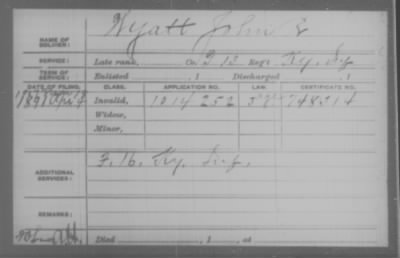 NAME OF SOLDIER: Wyatt John
SERVICE: Late rank, Co. F 13 Reg't Ky. Inf
TERM OF SERVICE: Enlisted , 1 Discharged , 1
DATE OF FILING. CLASS. APPLICATION NO. LAW. CERTIFICATE NO.
Invalid, 1014252
Widow,
Minor,
ADDITIONAL SERVICES: F. 16. Ky. Inf.
REMARKS:
Died , 1 , at